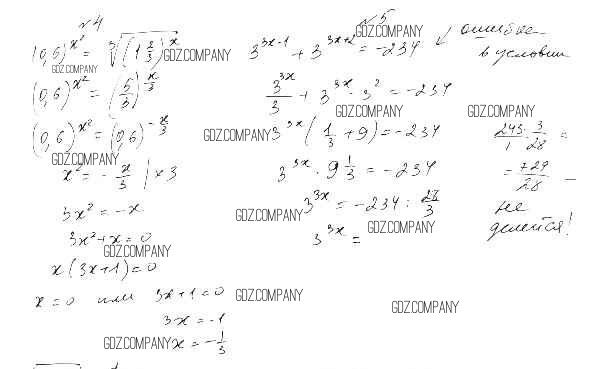 №4
(0,6)^{x^2} = \sqrt[3]{(1\frac{2}{3})^x}
GDZ.COMPANY
GDZ.COMPANY
(0,6)^{x^2} = (\frac{5}{3})^{\frac{x}{3}}
(0,6)^{x^2} = (0,6)^{-\frac{x}{3}}
GDZ.COMPANY
x^2 = -\frac{x}{3} | ×3
3x^2 = -x
3x^2 + x = 0
GDZ.COMPANY
x(3x+1) = 0
x = 0 или 3x+1 = 0
3x = -1
GDZ.COMPANY
x = -\frac{1}{3}
№5
GDZ.COMPANY
3^{3x-1} + 3^{3x+2} = -234
ошибка
в условии
\frac{3^{3x}}{3} + 3^{3x} · 3^2 = -234
GDZ.COMPANY
GDZ.COMPANY
3^{3x}(\frac{1}{3} + 9) = -234
GDZ.COMPANY
3^{3x} · 9\frac{1}{3} = -234
3^{3x} = -234 : \frac{28}{3}
GDZ.COMPANY
3^{3x} =
GDZ.COMPANY
\frac{243}{1} · \frac{3}{28} =
= \frac{729}{28} –
не
делится!
GDZ.COMPANY
GDZ.COMPANY